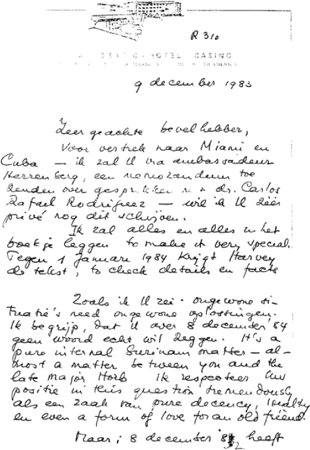 R 310
HOTEL CASINO
9 december 1983
Zeer geachte bevelhebber,
Voor vertrek naar Miami en
Cuba – ik zal U via ambassadeur
Herrenberg, een memorandum toe
zenden over gesprekken m dr. Carlos
Rafael Rodriguez – wil ik U dées
privé nog dit schrijven.
Ik zal alles en alles in het
boekje leggen to make it very special.
Tegen 1 Januari 1984 krijgt Harvey
de tekst, to check details en facts
Zoals ik U zei: ongewone si-
tuatie's need ongewone oplossingen.
Ik begrijp, dat U over 8 december '84
geen woord echt wil zeggen. It's a
pure internal Surinam matter – al-
most a matter between you and the
late major Horb. Ik respecteer Uw
positie in this question tremendously
als een zaak van pure decency, loyalty
en even a form of love for an old friend.
Maar; 8 december heeft